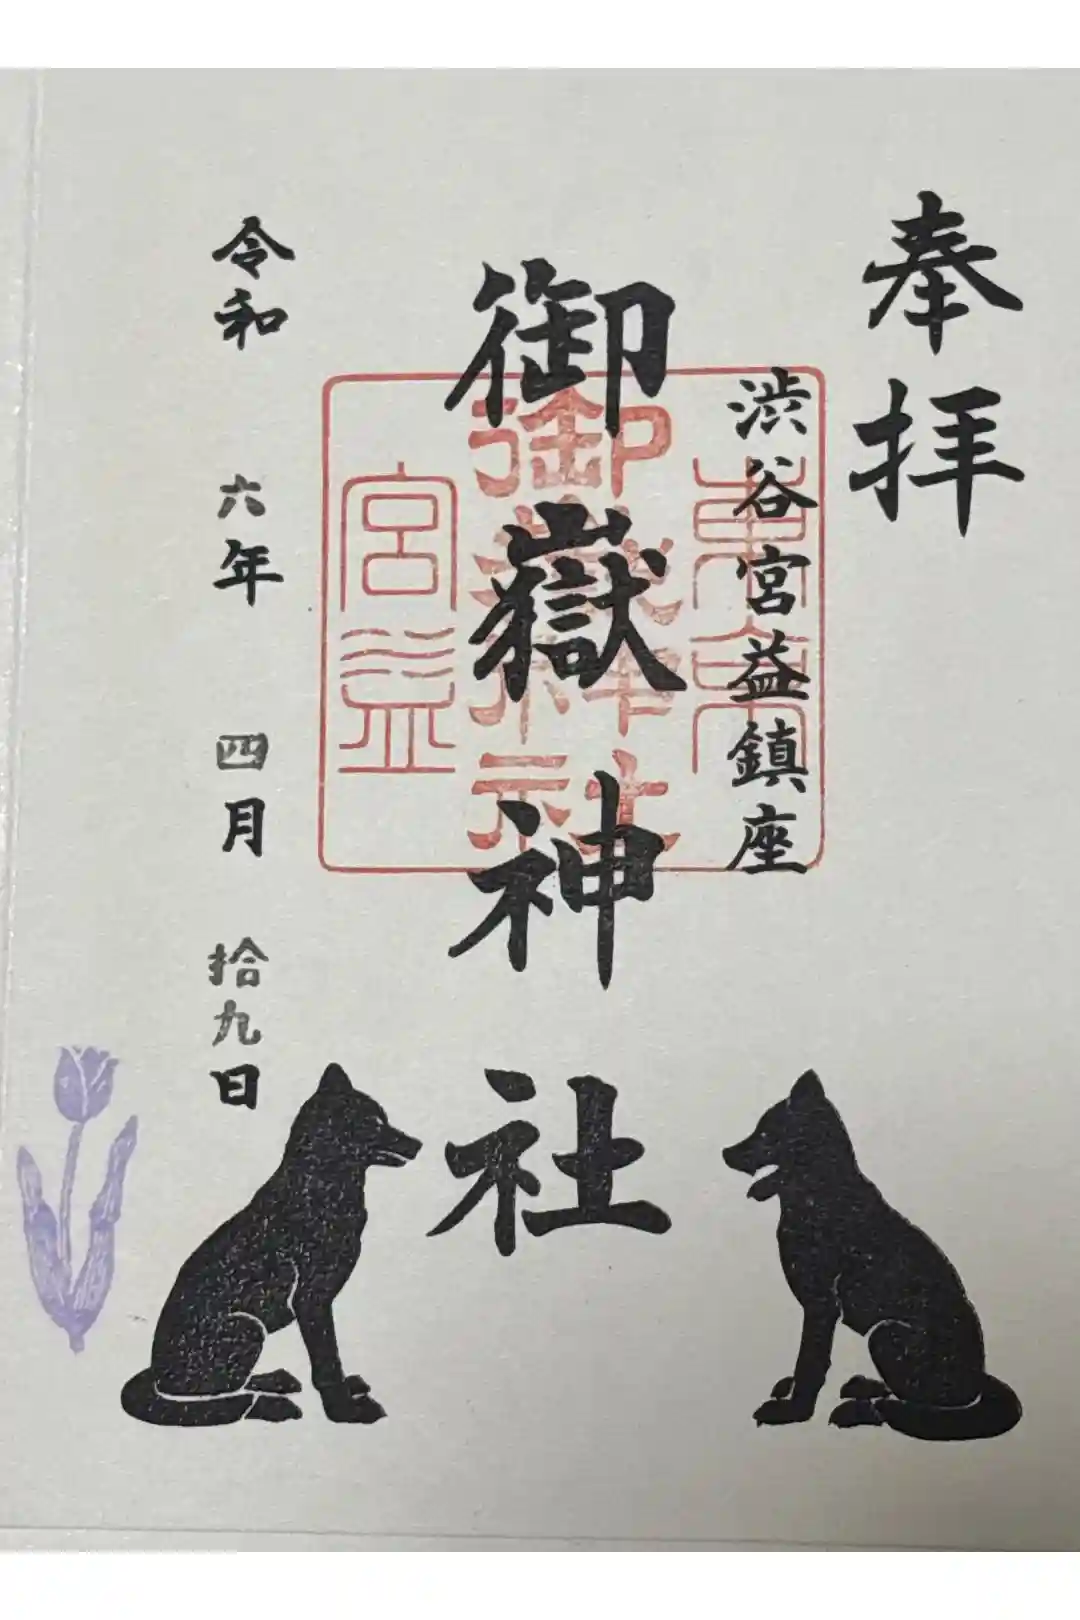 奉拝
渋谷宮益鎮座
御嶽神社
東京
御嶽神社
宮益
令和六年四月拾九日